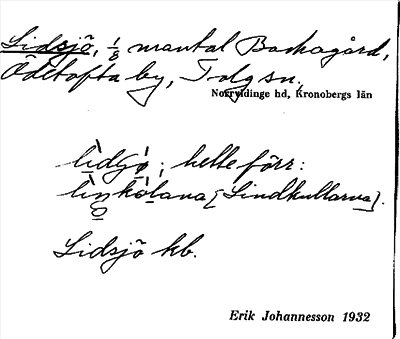 Lidsjö, 1/8 mantal Backagård,
Ödetofta by, Tolg sn,
Norrvidinge hd, Kronobergs län
hette förr:
[Lindkullarna].
Lidsjö kb.
Erik Johannesson 1932